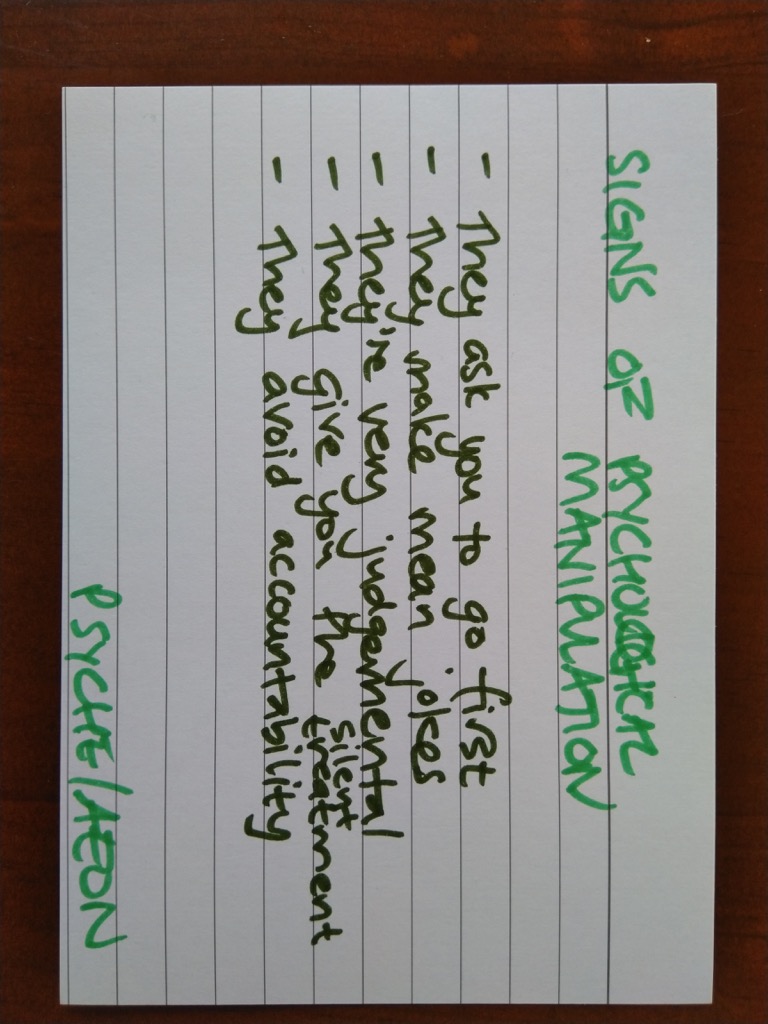 SIGNS OF PSYCHOLOGICAL
MANIPULATION
- They ask you to go first
- They make mean jokes
- They're very judgemental
- They give you the silent
treatment
- They avoid accountability
PSYCHE/AEON